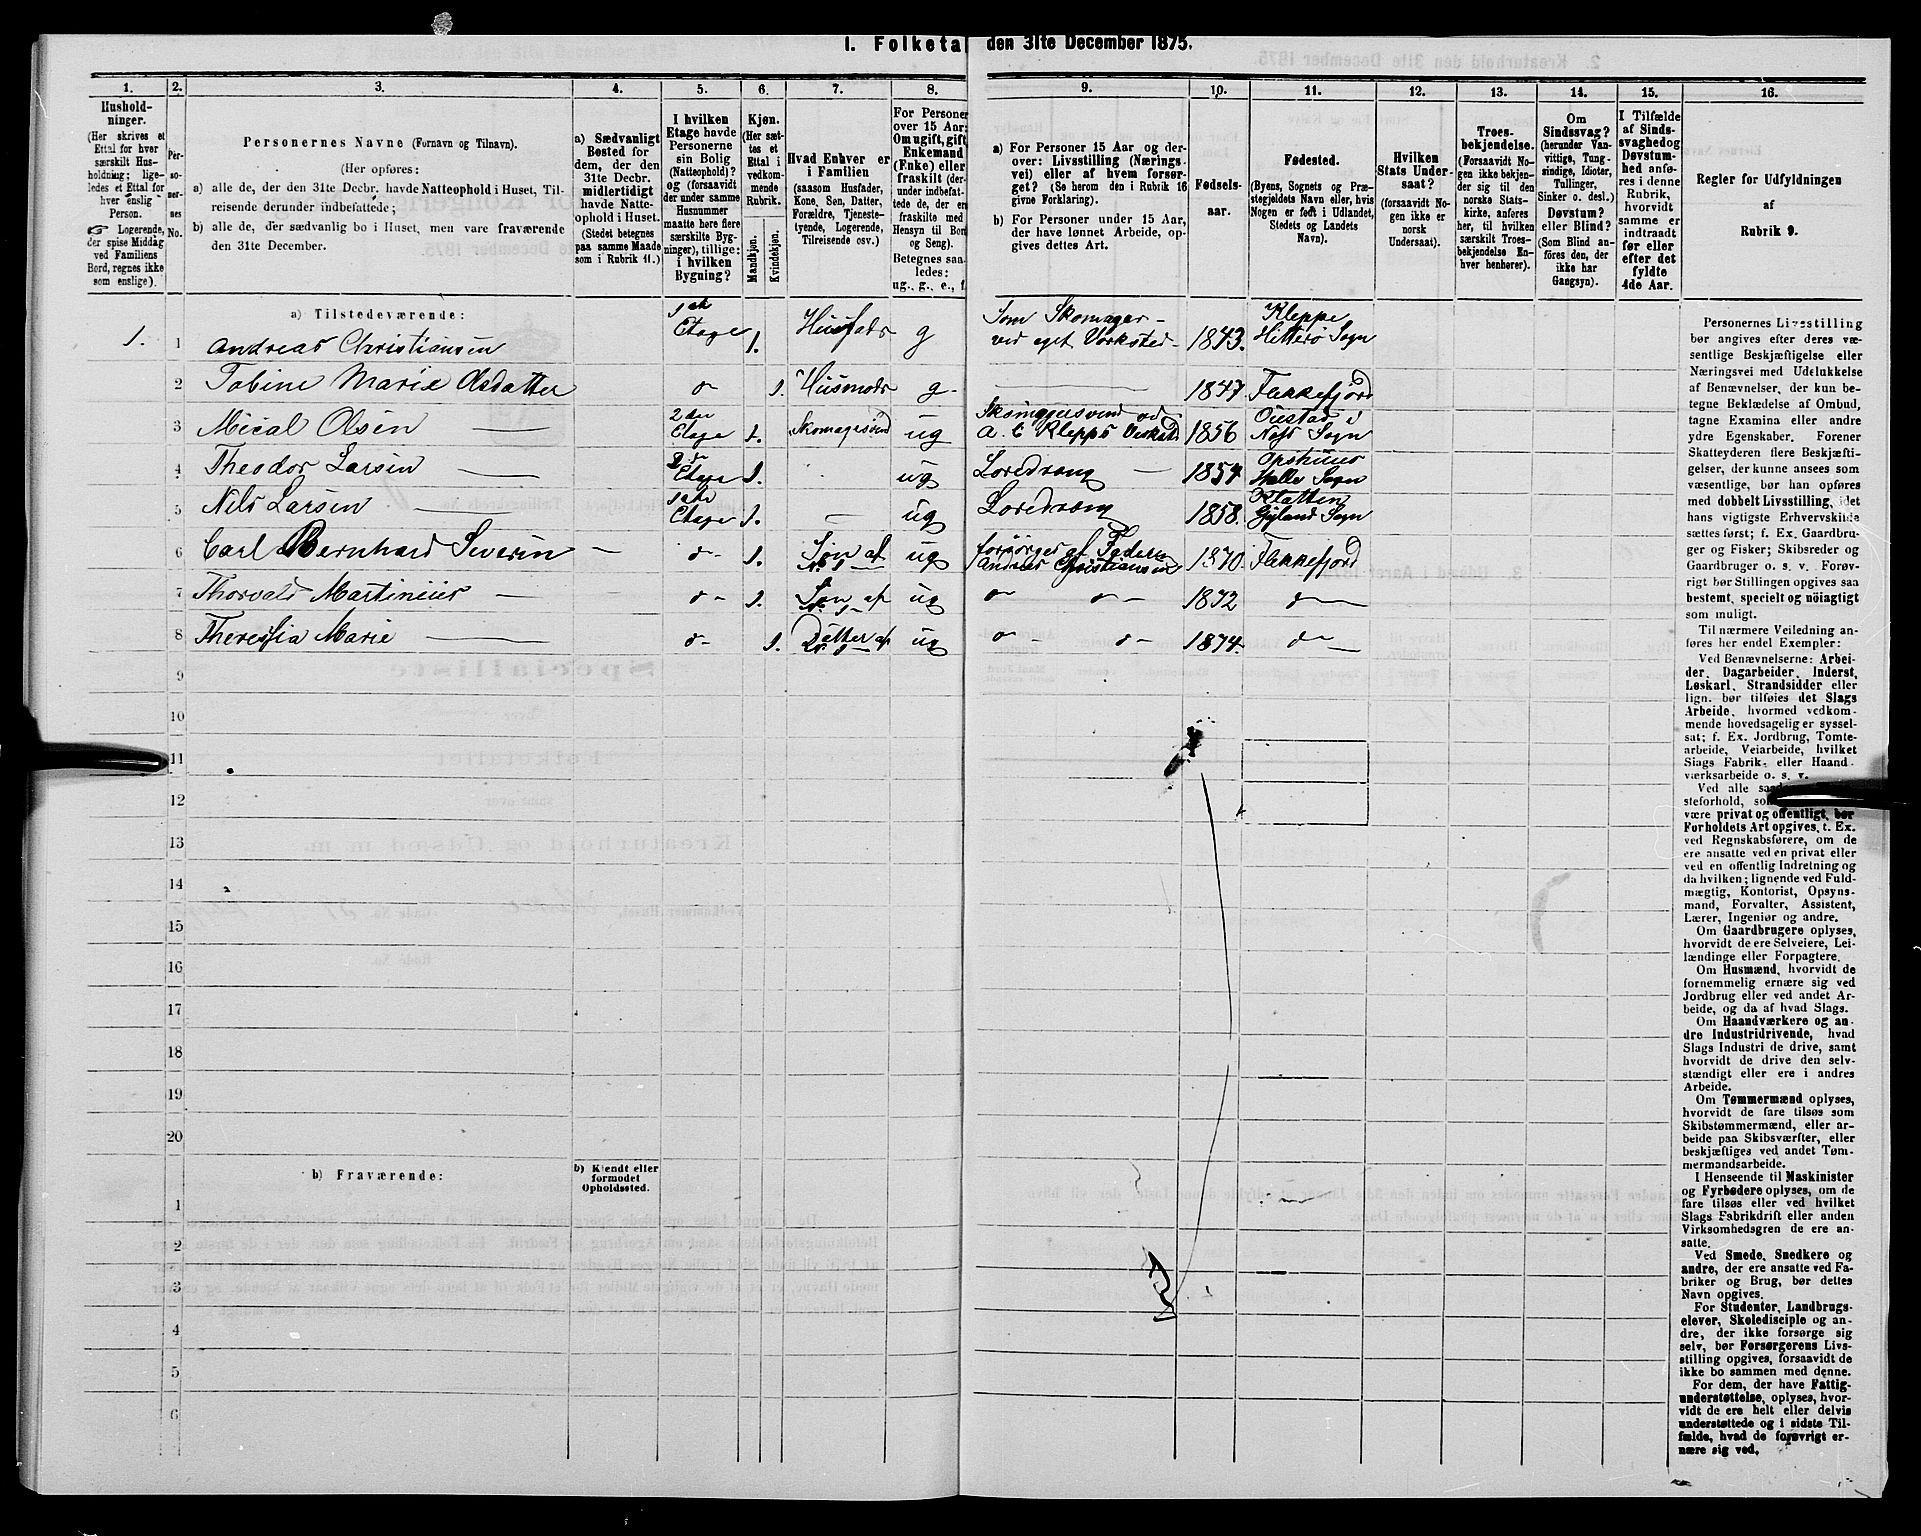 1. Folketal den 31te December 1875.
1.
2.
3.
4.
5.
6.
7.
8.
9.
10.
11.
12.
13.
14.
15.
16.
Hushold-
ninger.
(Her skrives et
Ettal for hver
særskilt Hus-
holdning; lige-
ledes et Ettal for
hver enslig
Person.
☞ Logerende,
der spise Middag
ved Familiens
Bord, regnes ikke
som enslige).
Per-
so-
ner-
nes
No.
Personernes Navne (Fornavn og Tilnavn).
(Her opføres:
a) alle de, der den 31te Decbr. havde Natteophold i Huset, Til-
reisende derunder indbefattede;
b) alle de, der sædvanlig bo i Huset, men vare fraværende
den 31te December.
a) Sædvanligt
Bosted for
dem, der den
31te Decbr.
midlertidigt
havde Natte-
ophold i Huset.
(Stedet betegnes
paa samme Maade
som i Rubrik 11.)
I hvilken
Etage havde
Personerne
sin Bolig
(Natteophold)?
og (forsaavidt
der under samme
Husnummer
maatte høre flere
særskilte Byg-
ninger), tillige:
i hvilken
Bygning?
Kjøn.
(Her sæt-
tes et
Ettal i
vedkom-
mende
Rubrik.
Mandkjøn.
Kvindekjøn.
Hvad Enhver er
i Familien
(saasom Husfader,
Kone, Søn, Datter,
Forældre, Tjeneste-
tyende, Logerende,
Tilreisende osv.)
For Personer
over 15 Aar:
Om ugift, gift,
Enkemand
(Enke) eller
fraskilt (der-
under indbefat-
tede de, der ere
fraskilte med
Hensyn til Bord
og Seng).
Betegnes saa-
ledes:
ug., g., e., f.
a) For Personer 15 Aar og der-
over: Livsstilling (Nærings-
vei) eller af hvem forsør-
get? (Se herom den i Rubrik 16
givne Forklaring).
b) For Personer under 15 Aar,
der have lønnet Arbeide, op-
gives dettes Art.
Fødsels-
aar.
Fødested.
(Byens, Sognets og Præ-
stegjeldets Navn eller, hvis
Nogen er født i Udlandet,
Stedets og Landets
Navn).
Hvilken
Stats Under-
saat?
(forsaavidt No-
gen ikke er
norsk
Undersaat).
Troes-
bekjendelse.
(Forsaavidt No-
gen ikke bekjen-
der sig til den
norske Stats-
kirke, anføres
her, til hvilken
særskilt Troes-
bekjendelse En-
hver henhører).
Om
Sindssvag?
(herunder Van-
vittige, Tung-
sindige, Idioter,
Tullinger,
Sinker o. desl.)
Døvstum?
eller Blind?
(Som Blind an-
føres den, der
ikke har
Gangsyn).
I Tilfælde
af Sinds-
svaghed og
Døvstum-
hed anfø-
res i denne
Rubrik,
hvorvidt
samme er
indtraadt
før eller
efter det
fyldte
4de Aar.
Regler for Udfyldningen
af
Rubrik 9.
a) Tilstedeværende:
1. 1 Andreas Christiansen 1ste Etage 1. Husfader g Som Skomager ved eget Værksted 1843. Kleppe Hitterø Sogn
2 Tobine Marie Olsdatter do 1. Husmoder g. 1847 Flekkefjord
3 Mical Olsen 2den Etage 1. Skomagersvend ug Skomagersvend ved A. C Klepps Verksted 1856 Næss Sogn
4 Theodor Larsen 2den Etage 1. ug Loredreng 1857 Opshuus Helle Sogn
5 Nils Larsen 1ste Etage 1. ug Loredreng 1858. Flatten Gyland Sogn
6 Carl Bernhard Severin do 1. Søn af No. 1 ug forsørges af Faderen Andreas Christiansen 1870. Flekkefjord
7 Thorvald Martinius do 1. Søn af No. 1 ug do do 1872 do
8 Theresia Marie do 1. Datter af No. 1 ug do do 1874. do
9
10
11
12
13
14
15
16
17
18
19
20
b) Fraværende:
b) Kjendt eller
formodet
Opholdssted.
1
2
3
4
5
6
Personernes Livsstilling
bør angives efter deres væ-
sentlige Beskjæftigelse eller
Næringsvei med Udelukkelse
af Benævnelser, der kun be-
tegne Beklædelse af Ombud,
tagne Examina eller andre
ydre Egenskaber. Forener
Skatteyderen flere Beskjæfti-
gelser, der kunne ansees som
væsentlige, bør han opføres
med dobbelt Livsstilling, idet
hans vigtigste Erhvervskilde
sættes først; f. Ex. Gaardbru-
ger og Fisker; Skibsreder og
Gaardbruger o. s. v. Forøv-
rigt bør Stillingen opgives saa
bestemt, specielt og nøiagtigt
som muligt.
Til nærmere Veiledning an-
føres her endel Exempler:
Ved Benævnelserne: Arbei-
der, Dagarbeider, Inderst,
Løskarl, Strandsidder eller
lign. bør tilføies det Slags
Arbeide, hvormed vedkom-
mende hovedsagelig er syssel-
sat; f. Ex. Jordbrug, Tomte-
arbeide, Veiarbeide, hvilket
Slags Fabrik- eller Haand-
værksarbeide o. s. v.
Ved alle
steforhold,
være privat og offentligt, bør
Forholdets Art opgives, t. Ex.
ved Regnskabsførere, om de
ere ansatte ved en privat eller
ved en offentlig Indretning og
da hvilken; lignende ved Fuld-
mægtig, Kontorist, Opsyns-
mand, Forvalter, Assistent,
Lærer, Ingeniør og andre.
Om Gaardbrugere oplyses,
hvorvidt de ere Selveiere, Lei-
lændinge eller Forpagtere.
Om Husmænd, hvorvidt de
fornemmelig ernære sig ved
Jordbrug eller ved andet Ar-
beide, og da af hvad Slags.
Om Haandværkere og an-
dre Industridrivende, hvad
Slags Industri de drive, samt
hvorvidt de drive den selv-
stændigt eller ere i andres
Arbeide.
Om Tømmermænd oplyses,
hvorvidt de fare tilsøs som
Skibstømmermænd, eller ar-
beide paa Skibsværfter, eller
beskjæftiges ved andet Tøm-
mermandsarbeide.
I Henseende til Maskinister
og Fyrbødere oplyses, om de
fare tilsøs eller ved hvilket
Slags Fabrikdrift eller anden
Virksomhedsgren de ere an-
satte.
Ved Smede, Snedkere og
andre, der ere ansatte ved Fa-
briker og Brug, bør dettes
Navn opgives.
For Studenter, Landbrugs-
elever, Skoledisciple og an-
dre, der ikke forsørge sig
selv, bør Forsørgerens Livs-
stilling opgives, forsaavidt de
ikke bo sammen med denne.
For dem, der have Fattig-
understøttelse, oplyses, hvor-
vidt de ere helt eller delvis
understøttede og i sidste Til-
fælde, hvad de forøvrigt er-
nære sig ved.